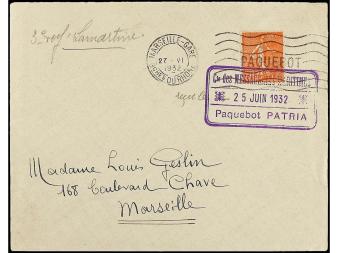 Lamartine
MARSEILLE-GARE
27 - VI
1932
BCHES DU RHÔNE
PAQUEBOT
Cie des MESSAGERIES MARITIMES
25 JUIN 1932
Paquebot PATRIA
Madame Louis Geslin
168 boulevard Chave
Marseille